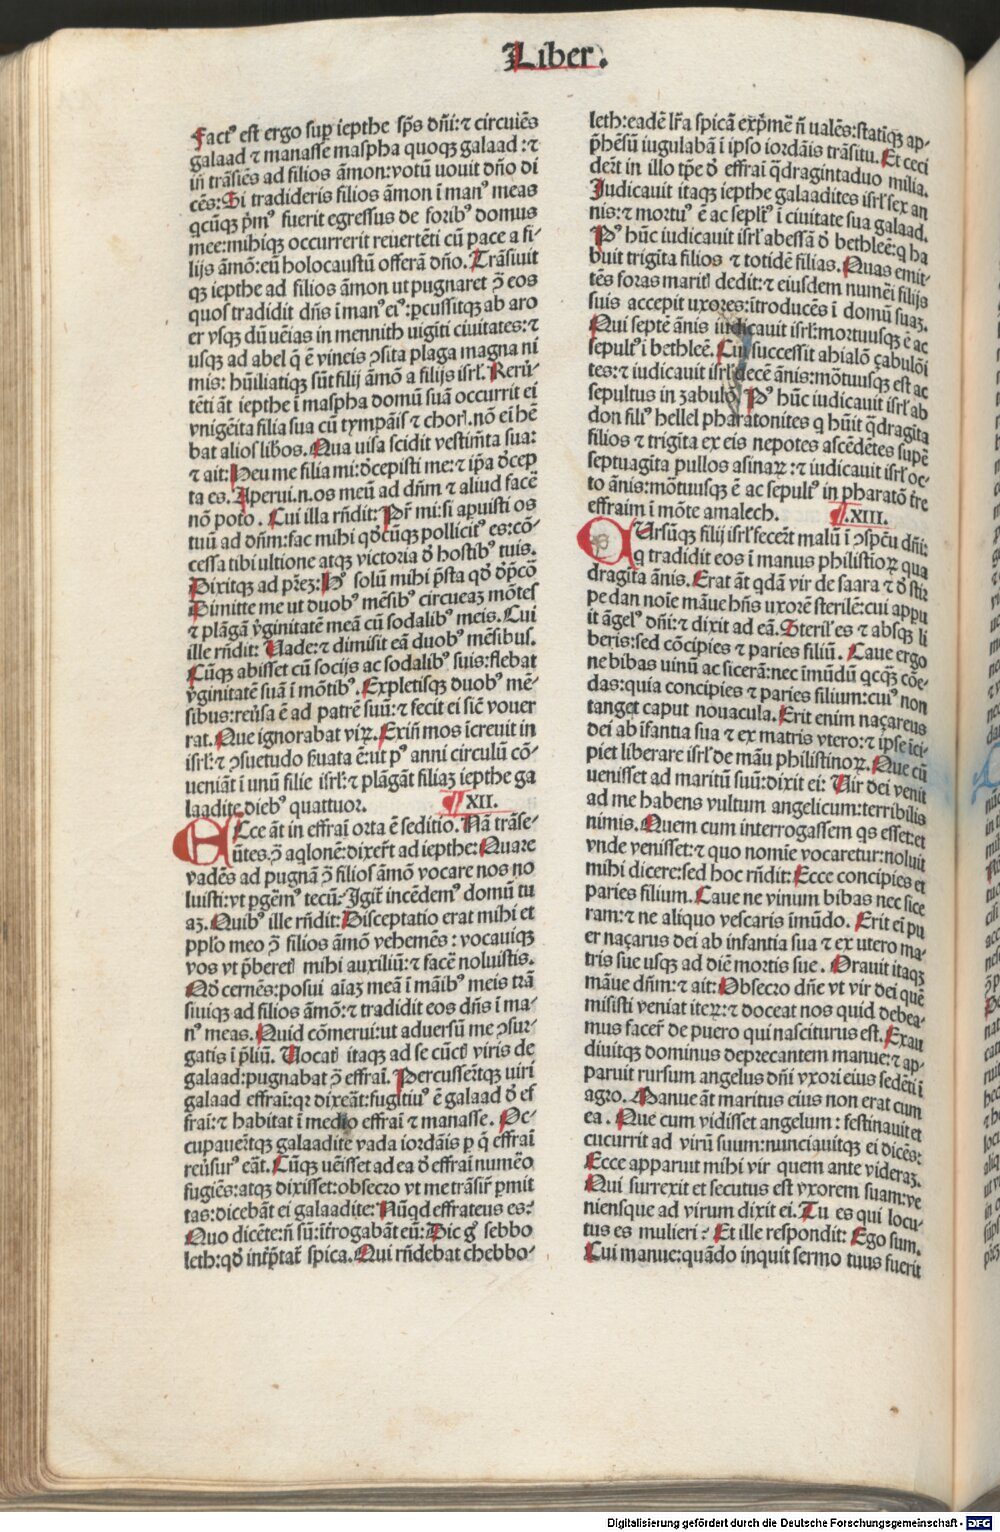 Liber.
Fact⁹ est ergo sup iepthe sp̄s dñi: ⁊ circuiēs
galaad ⁊ manasse maspha quoqꝫ galaad: ⁊
iñ trāsiēs ad filios āmon: votū uouit dño di
cēs: Si tradideris filios āmon i man⁹ meas
qcūqꝫ p̄m⁹ fuerit egressus de forib⁹ domus
mee: mihiqꝫ occurrerit reuertēti cū pace a fi-
lijs āmō: eū holocaustū offerā dño. Trāsiuit
qꝫ iepthe ad filios āmon ut pugnaret ꝯ̄ eos
quos tradidit dñs i man⁹ ei⁹: ꝑcussitqꝫ ab aro
er vsqꝫ dū uēias in mennith uigīti ciuitates: ⁊
usqꝫ ad abel q̄ ē vineis ꝯsita plaga magna ni
mis: hūiliatiqꝫ sūt filij āmō a filijs isrl̄. Reru̇-
tēti āt iepthe ī maspha domū suā occurrit ei
vnigēita filia sua cū tympāis ⁊ chorl. nō eī hē
bat alios libos. Qua uisa scidit vestim̄ta sua:
⁊ ait: Heu me filia mi: d̄cepisti me: ⁊ ip̄a d̄cep
ta es. Aperui.n. os meū ad dñm ⁊ aliud facē
nō poto. Cui illa rñdit: Pr̄ mi: si apuisti os
tuū ad dñm: fac mihi qd̄cūqꝫ pollicit⁹ es: cō-
cessa tibi ultione atqꝫ victoria d̄ hostib⁹ tuis.
Dixitqꝫ ad prēꝫ: H⁹ solū mihi p̄sta qd̄ d̄p̄cō
Dimitte me ut duob⁹ mēsib⁹ circueaꝫ mōtes
⁊ plāgā v̇ginitatē meā cū sodalib⁹ meis. Cui
ille rñdit: Vade: ⁊ dimisit eā duob⁹ mēsibus.
Cūqꝫ abisset cū socijs ac sodalib⁹ suis: flebat
v̇ginitatē suā i mōtib⁹. Expletisqꝫ duob⁹ mē-
sibus: reu̇sa ē ad patrē suū: ⁊ fecit ei sic̄ vouer
rat. Que ignorabat viꝝ. Exiñ mos icreuit in
isrl̄: ⁊ ꝯsuetudo s̄uata ē: ut p⁹ anni circulū cō-
ueniāt i unū filie isrl̄: ⁊ plāgāt filiaꝫ iepthe ga
laadite dieb⁹ quattuor. ¶ XII.
ECce āt in effraī orta ē seditio. Nā trāse-
ūtes ꝯ̄ aqlonē: dixer̄t ad iepthe: Quare
vadēs ad pugnā ꝯ̄ filios āmō vocare nos no
luisti: vt pgēm⁹ tecū: Igit̄ incēdem⁹ domū tu
aꝫ. Quib⁹ ille rñdit: Disceptatio erat mihi et
pplo meo ꝯ̄ filios āmō vehemēs: vocauiqꝫ
vos vt p̄beretl mihi auxiliū: ⁊ facē noluistis.
Qd̄ cernēs: posui aiaꝫ meā ī māib⁹ meis trā
siuiqꝫ ad filios āmō: ⁊ tradidit eos dñs i ma-
n⁹ meas. Quid cōmerui: ut aduersū me ꝯsur-
gatis i p̄liū. Vocatl itaqꝫ ad se cūctl viris de
galaad: pugnabat ꝯ̄ effraī. Percusser̄tqꝫ uiri
galaad effraī: qꝛ dixeāt: fugitiu⁹ ē galaad d̄ ef
fraī: ⁊ habitat i medio effraī ⁊ manasse. Oc-
cupauer̄tqꝫ galaadite vada iordāis p q̄ effraī
reu̇sur⁹ eāt. Cūqꝫ uēisset ad ea d̄ effraī numēo
fugiēs: atqꝫ dixisset: obsecro vt me trāsir̄ ꝑmit
tas: dicebāt ei galaadite: Nūqd effrateus es:
Quo dicēte: ñ sū: īr̄rogabāt eū: Dic g̊ sebbo
leth: qd̄ int̄p̄tat̄ spica. Qui rñdebat chebbo-
leth: eadē lr̄a spicā exp̄mē ñ ualēs: statīqꝫ ap-
p̄hēsū iugulabā i ipso iordāis trāsitu. Et ceci
der̄t in illo tꝑe d̄ effraī q̄dragintaduo milia.
Judicauit itaqꝫ iepthe galaadites isrl̄ sex an
nis: ⁊ mortu⁹ ē ac seplt⁹ i ciuitate sua galaad.
P⁹ hūc iudicauit isrl̄ abessā d̄ bethleē: q ha
buit trigīta filios ⁊ totidē filias. Quas emit-
tēs foras maritl dedit: ⁊ eiusdem numēi filijs
suis accepit uxores: ītroducēs i domū suaꝫ.
Qui septē ānis iudicauit isrl̄: mortuusqꝫ ē ac
sepult⁹ i bethleē. Cui successit ahialō çabulōi
tes: ⁊ iudicauit isrl̄ decē ānis: mōtuusqꝫ est ac
sepultus in zabulō. P⁹ hūc iudicauit isrl̄ ab
don fili⁹ hellel pharatonites q hūit q̄dragīta
filios ⁊ trigīta ex eis nepotes ascēdētes supē
septuagīta pullos asinaꝝ: ⁊ iudicauit isrl̄ oc-
to ānis: mōtuusqꝫ ē ac sepult⁹ in pharatō t̄re
effraim i mōte amalech. ¶.XIII.
RUrsūqꝫ filij isrl̄ fecer̄t malū i ꝯspcū dñi:
q tradidit eos i manus philistioꝝ qua
dragīta ānis. Erat āt qdā vir de saara ⁊ d̄ stir
pe dan noīe māue hñs uxorē sterilē: cui appu
it āgel⁹ dñi: ⁊ dixit ad eā. Steril⁹ es ⁊ absqꝫ li
beris: sed cōcipies ⁊ paries filiū. Caue ergo
ne bibas uinū ac sicerā: nec īmūdū qcqꝫ cōe-
das: quia concipies ⁊ paries filium: cui⁹ non
tanget caput nouacula. Erit enim naçareus
dei ab īfantia sua ⁊ ex matris vtero: ⁊ ipse īci-
piet liberare isrl̄ de māu philistinoꝝ. Que cū
uenisset ad maritū suū: dixit ei: Vir dei venit
ad me habens vultum angelicum: terribilis
nimis. Quem cum interrogassem qs esset: et
vnde venisset: ⁊ quo nomīe vocaretur: noluit
mihi dicere: sed hoc rñdit: Ecce concipies et
paries filium. Caue ne vinum bibas nec sice
ram: ⁊ ne aliquo vescaris īmūdo. Erit ei pu
er naçarus dei ab infantia sua ⁊ ex utero ma-
tris sue usqꝫ ad diē mortis sue. Orauit itaqꝫ
māue dñm: ⁊ ait: Obsecro dñe vt vir dei quē
misisti veniat iteꝝ: ⁊ doceat nos quid debea-
mus facer̄ de puero qui nasciturus est. Exau
diuitqꝫ dominus deprecantem manue: ⁊ ap-
paruit rursum angelus dñi vxori eius sedēti i
agro. Manue āt maritus eius non erat cum
ea. Que cum vidisset angelum: festinauit et
cucurrit ad virū suum: nunciauitqꝫ ei dicēs:
Ecce apparuit mihi vir quem ante videraꝫ.
Qui surrexit et secutus est vxorem suam: ve
niensque ad virum dixit ei. Tu es qui locu-
tus es mulieri? Et ille respondit: Ego sum.
Cui manue: quādo inquit sermo tuus fuerit
Digitalisierung gefördert durch die Deutsche Forschungsgemeinschaft - DFG